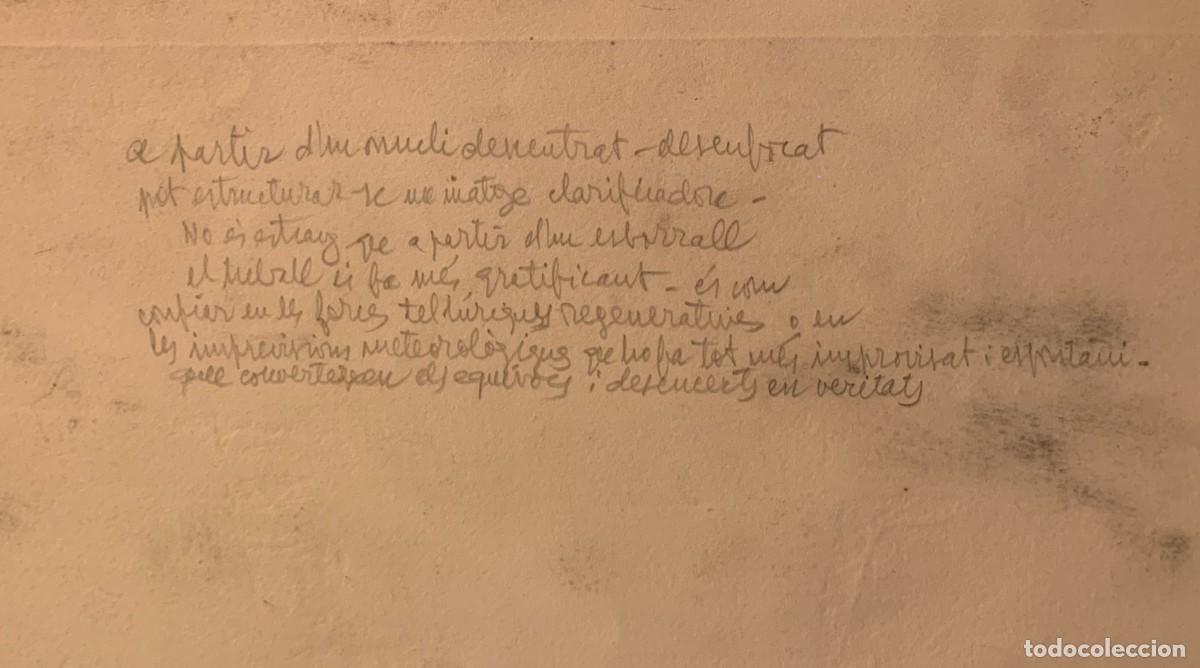 a partir d'un nucli descentrat - desenfocat
pot estructurar-se una imatge clarificadora -
No és estrany que a partir d'un esborrall
el treball es fa més gratificant - és com
confiar en les forces tel·lúriques regeneratives o en
les imprevisions meteorològiques que ho fa tot més improvisat i espontani -
que converteixen els equívocs i desencerts en veritats
todocoleccion